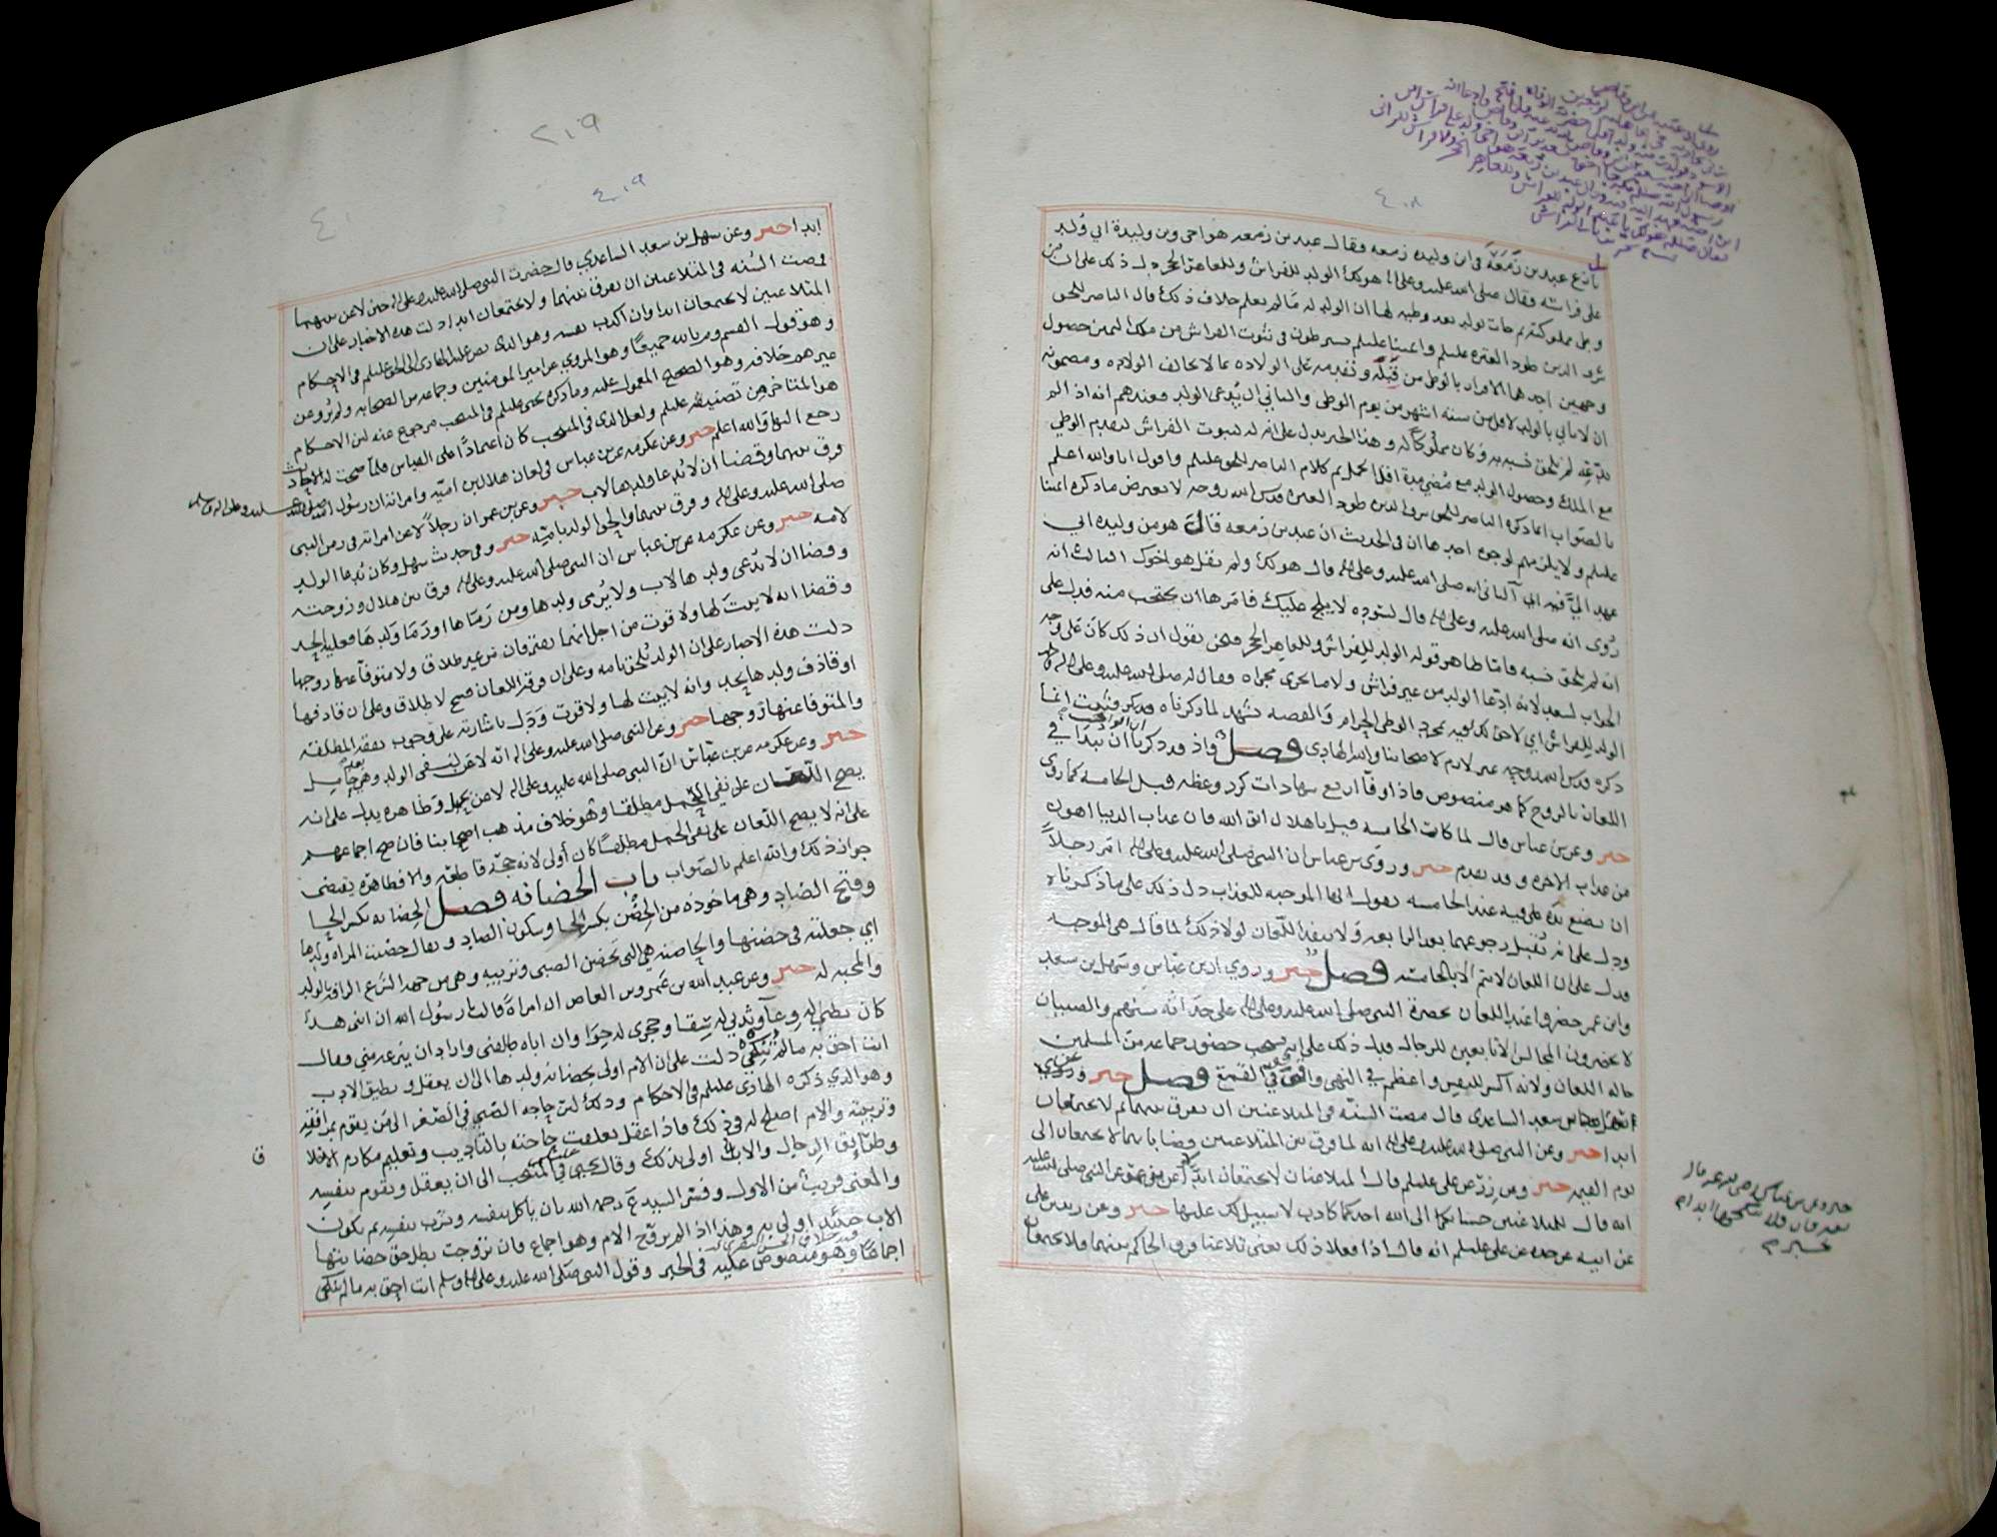 ٤٠٨
نازع عبد بن زمعة في ابن وليده زمعه وقال عبد بن زمعه هو اخي وبن وليدة ابي وُلد
على فراشه فقال صلى الله عليه وعلى اله هو لك الولد للفراش وللعاهر الحجر دل ذلك على ان من
وطى مملوكته ثم جات بولد بعد وطيه لها ان الولد له مالم يعلم خلاف ذلك قال الناصر للحق
شرف الدين طود العتره عليلم وائمتنا عليلم يشرطون في ثبوت الفراش من ملك اليمين حصول
وجهين احدهما الاقرار بالوطى من قَبله وتقدمه على الولاده بما لا يخالف الولاده ومضمونه
ان لا ياتي بالولد لاقل من ستة اشهر من يوم الوطى والثاني ان يُدعى الولد فعندهم انه اذا لم
يدّعِه لم يلحق نسبه به وكان مملُوكاً له وهذا الخبر يدل على انه له لثبوت الفراش بتقديم الوطي
مع الملك وحصول الولد مع مُضي مدة اقل الحمل ثم كلام الناصر للحق عليلم واقول انا والله اعلم
بالصواب انما ذكره الناصر للحق شرف الدين طود العتره قدس الله روحه لا يعترض ما ذكره ائمتنا
عليلم ولا يلزمهم لوجوه احدها ان في الحديث ان عبد بن زمعه قال هو من وليده ابي
عهد اليَّ فيه ابي الثاني انه صلى الله عليه وعلى اله قال هو لك ولم يقل هو اخوك الثالث انه
رُوى انه صلى الله عليه وعلى اله قال لسوده لا يلج عليك فامرها ان تحتجب منه فدل على
انه لم يلحق نسبه فامّا ظاهر قوله الولد للفراش وللعاهر الحجر فنحن نقول ان ذلك كان على وجه
الجواب لسعد لانه ادّعا الولد من غير فراش ولا ما يجري مجراه فقال له صلى الله عليه وعلى اله
الولد للفراش اي لا حق لك فيه بمجرد الوطى الحرام والقصه تشهد لما ذكرناه
ذكره قدس الله روحه غير لازم لاصحابنا والله الهادي فصل واذ قد ذكرنا ان نبدا في
اللعان بالزوج كما هو منصوص فاذا وفّا اربع شهادات كرر وعظه قبل الخامسه كما روى
خبر وعن بن عباس قال لما كانت الخامسه قيل يا هلال اتق الله فان عذاب الدنيا اهون
من عذاب الاخره وقد تقدم خبر وروى بن عباس ان النبي صلى الله عليه وعلى اله امر رجلاً
ان يضع يده على فيه عند الخامسه يقول انها الموجبه للعذاب دل ذلك على ما ذكرناه
ودل على انه تُقبل رجوعهما بعد الرابعه ولا ينفذ اللعان لولا ذلك لما قال هي الموجبه
فدل على ان اللعان لا يتم الا بالخامسه فصل خبر وروي ان بن عباس وسهل بن سعد
وابن عمر حضروا عند اللعان بحضرة النبي صلى الله عليه وعلى اله على حداثة سنهم والصبيان
لا يحضرون المجالس الا تابعين للرجال فدل ذلك على انه يستحب حضور جماعة من المسلمين
حاله اللعان ولانه اكبر للتغليظ واعظم في النهي في القمع فصل خبر وروي
سعد الساعدي قال مضت السنّه في المتلاعنين ان يفرق بينهما ثم لا يجتمعان
ابدا خبر وعن النبي صلى الله عليه وعلى اله انه لما فرق بين المتلاعنين وقضا بانهما لا يجتمعان الى
يوم القيمه خبر وعن زرّ عن علي عليلم قال المتلاعنان لا يجتمعان ابدا
انه قال للمتلاعنين حسابكما الى الله احدكما كاذب لا سبيل لك عليها خبر وعن زيد بن علي
عن ابيه عن جده عن علي عليلم انه قال اذا فعلا ذلك يعني تلاعنا فرق الحاكم بينهما فلا يجتمعان
٢٠٩
٤٠٩
ابدا خبر وعن سهل بن سعد الساعدي قال حضرت النبي صلى الله عليه وعلى اله حين لاعن بينهما
فمضت السُنه في المتلاعنين ان يفرق بينهما ولا يجتمعان ابدا دلت هذه الاخبار على ان
المتلاعنين لا يجتمعان ابدا وان اكذب نفسه وهو الذي نص عليه الهادي الى الحق عليلم في الاحكام
وهو قول القسم وم بالله جميعًا وهو المروي عن امير المومنين وجماعه من الصحابه ولم يُرو عن
غيرهم خلافه وهو الصحيح المعمول عليه وما ذكره يحيى عليلم في المنتخب مرجوع عنه لان الاحكام
هو المتاخر من تصنيفه عليلم ولعل الذي في المنتخب كان اعتمادًا على القياس فلما صحت له الاحاديث
رجع اليها والله اعلم خبر وعن عكرمه عن بن عباس في لعان هلال بن اميّه وامراته ان رسول الله صلى الله عليه وعلى اله وسلم
فرق بينهما وقضا ان لا يُدعا ولدها لاب خبر وعن بن عمر ان رجلاً لاعن امراته في زمن النبي
صلى الله عليه وعلى اله وفرق بينهما والحق الولد بامّه خبر وفي حديث سهل وكان يُدعا الولد
لامه خبر وعن عكرمه عن بن عباس ان النبي صلى الله عليه وعلى اله فرق بين هلال وزوجته
وقضا ان لا يُدعى ولدها لاب ولا يُرمى ولدها ومن رَمَاها او رَمَا ولدهَا فعليه الحد
وقضا انه لا بيت لها ولا قوت من اجل انهما يفترقان من غير طلاق ولا متوفا عنها زوجها
دلت هذه الاخبار على ان الولد يُلحق بامه وعلى ان فرقة اللعان فسخ لا طلاق وعلى ان قاذفها
او قاذف ولدها يُحد وانه لا بيت لها ولا قوت وَدَل باشارته على وجوب نفقة المطلقه
والمتوفا عنها زوجها خبر وعن النبي صلى الله عليه وعلى اله انه لاعن لنفي الولد وهي حامل
خبر وعن عكرمه عن بن عبّاس انّ النبي صلى الله عليه وعلى اله لاعن بحمل وظاهره يدل على انه
يصح اللعان على نفي الحمل مطلقا وهو خلاف مذهب اصحابنا فان صح اجماعهم
على انه لا يصح اللعان على نفي الحمل مطلقًا كان أولى لانه حجّة قاطعه والا فظاهره يقتضي
جواز ذلك والله اعلم بالصواب باب الحضانه فصل الحضانه بكسر الحا
وفتح الضاد وهي ماخوذه من الحِضن بكسر الحا وسكون الضاد ويقال حضنت المراه ولدها
اي جعلته في حضنها والحاضنه هي التي تحضن الصبى وتربيه وهي من جهة الشرع الرافة بالولد
والمحبه له خبر وعن عبد الله بن عَمرو بن العاص ان امراةً قالت يا رسُول الله ان ابني هذا
كان بطني له وِعآ وثديي له سِقا وحجرى له حِوا وان اباه طلقني واراد ان ينزعه مني فقال
انت احق به مالم تنكحي دلت على ان الام اولى بحضانة ولدها الى ان يعقل ويطيق الادب
وهو الذي ذكره الهادي عليلم في الاحكام وذلك لان حاجه الصّبي في الصّغر الى من يقوم بمرافقه
وتربيته والام اصلح له في ذلك فاذا عقل تعلقت حاجته بالتاديب وتعليم مكارم الاخلا
وطرايق الرجال والاب اولى بذلك وقال يحيى في المنتخب الى ان يعقل ويقوم بنفسه
والمعنى قريب من الاول وفسّر السيد ع رحمه الله بان ياكل بنفسه ويشرب بنفسه ثم يكون
الاب حينئذٍ اولى به وهذا اذا لم يزوّج الام وهو اجماع فان تزوجت بطل حق حضانتها
اجماعًا وهو منصوص عليه في الخبر وقول النبي صلى الله عليه وعلى اله وسلم انت احق به مالم تنكحي
ق